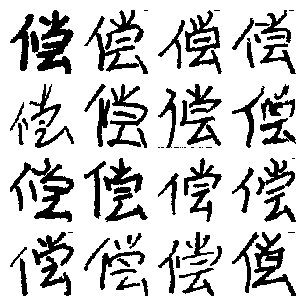 偿偿偿偿
偿偿偿偿
偿偿偿偿
偿偿偿偿